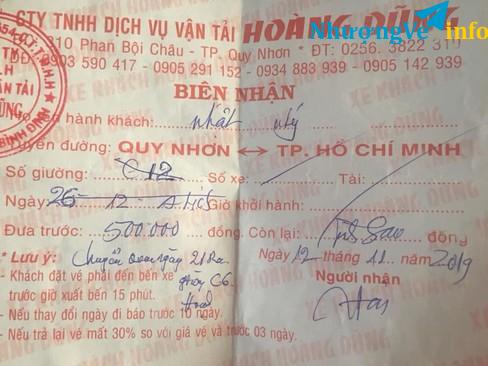 CTY TNHH DỊCH VỤ VẬN TẢI HOÀNG DŨNG
NhượngVé info
10 Phan Bội Châu - TP. Quy Nhơn * ĐT: 0256. 3822 319
DĐ: 0903 590 417 - 0905 291 152 - 0934 883 939 - 0905 142 939
BIÊN NHẬN
hành khách: nhất
Tuyến đường: QUY NHƠN ↔ TP. HỒ CHÍ MINH
Số giường: C12 Số xe: Tài:
Ngày 26 - 12 - Giờ khởi hành:
Đưa trước: 500.000 đồng. Còn lại: Sao đồng
* Lưu ý: Chuyển ngày 21
Ngày 12 tháng 11 năm 2019
- Khách đặt vé phải đến bến xe C6
Người nhận
trước giờ xuất bến 15 phút.
- Nếu thay đổi ngày đi báo trước 10 ngày.
- Nếu trả lại vé mất 30% so với giá vé và trước 03 ngày.